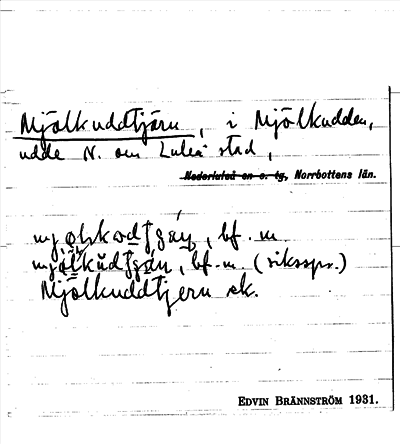 Mjölkuddtjärn, i Mjölkudden,
udde N. om Luleå stad,
Nederluleå sn o. tg, Norrbottens län.
bf. m.
bf. m. (riksspr.)
Mjölkuddtjern ek.
EDVIN BRÄNNSTRÖM 1931.